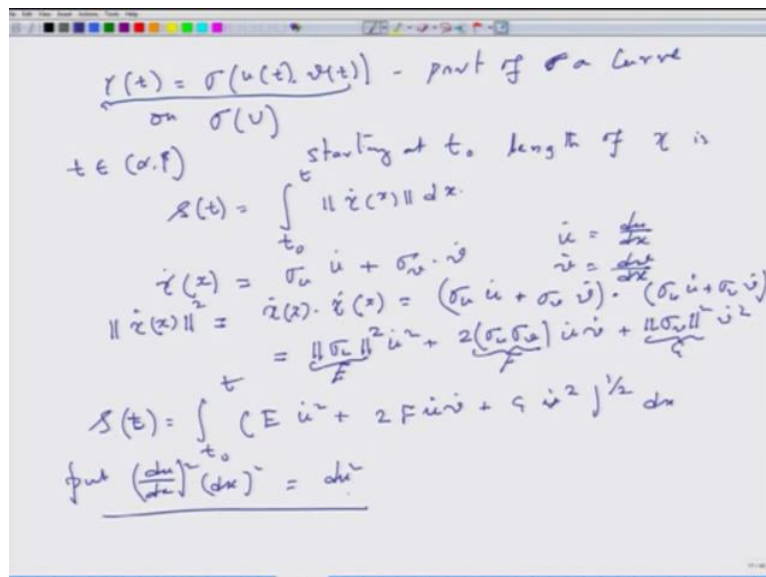 γ(t) = σ(u(t), v(t)) - part of a curve
on σ(U)
t ∈ (α, β) starting at t₀ length of γ is
s(t) = ∫_{t₀}^{t} ||γ̇(x)|| dx.
γ̇(x) = σ_u u̇ + σ_v · v̇ u̇ = du/dx
v̇ = dv/dx
||γ̇(x)||² = γ̇(x) · γ̇(x) = (σ_u u̇ + σ_v v̇) · (σ_u u̇ + σ_v v̇)
= ||σ_u||² u̇² + 2(σ_u σ_v) u̇ v̇ + ||σ_v||² v̇²
E F G
s(t) = ∫_{t₀}^{t} (E u̇² + 2F u̇ v̇ + G v̇²)^{1/2} dx
put (du/dx)² (dx)² = du²